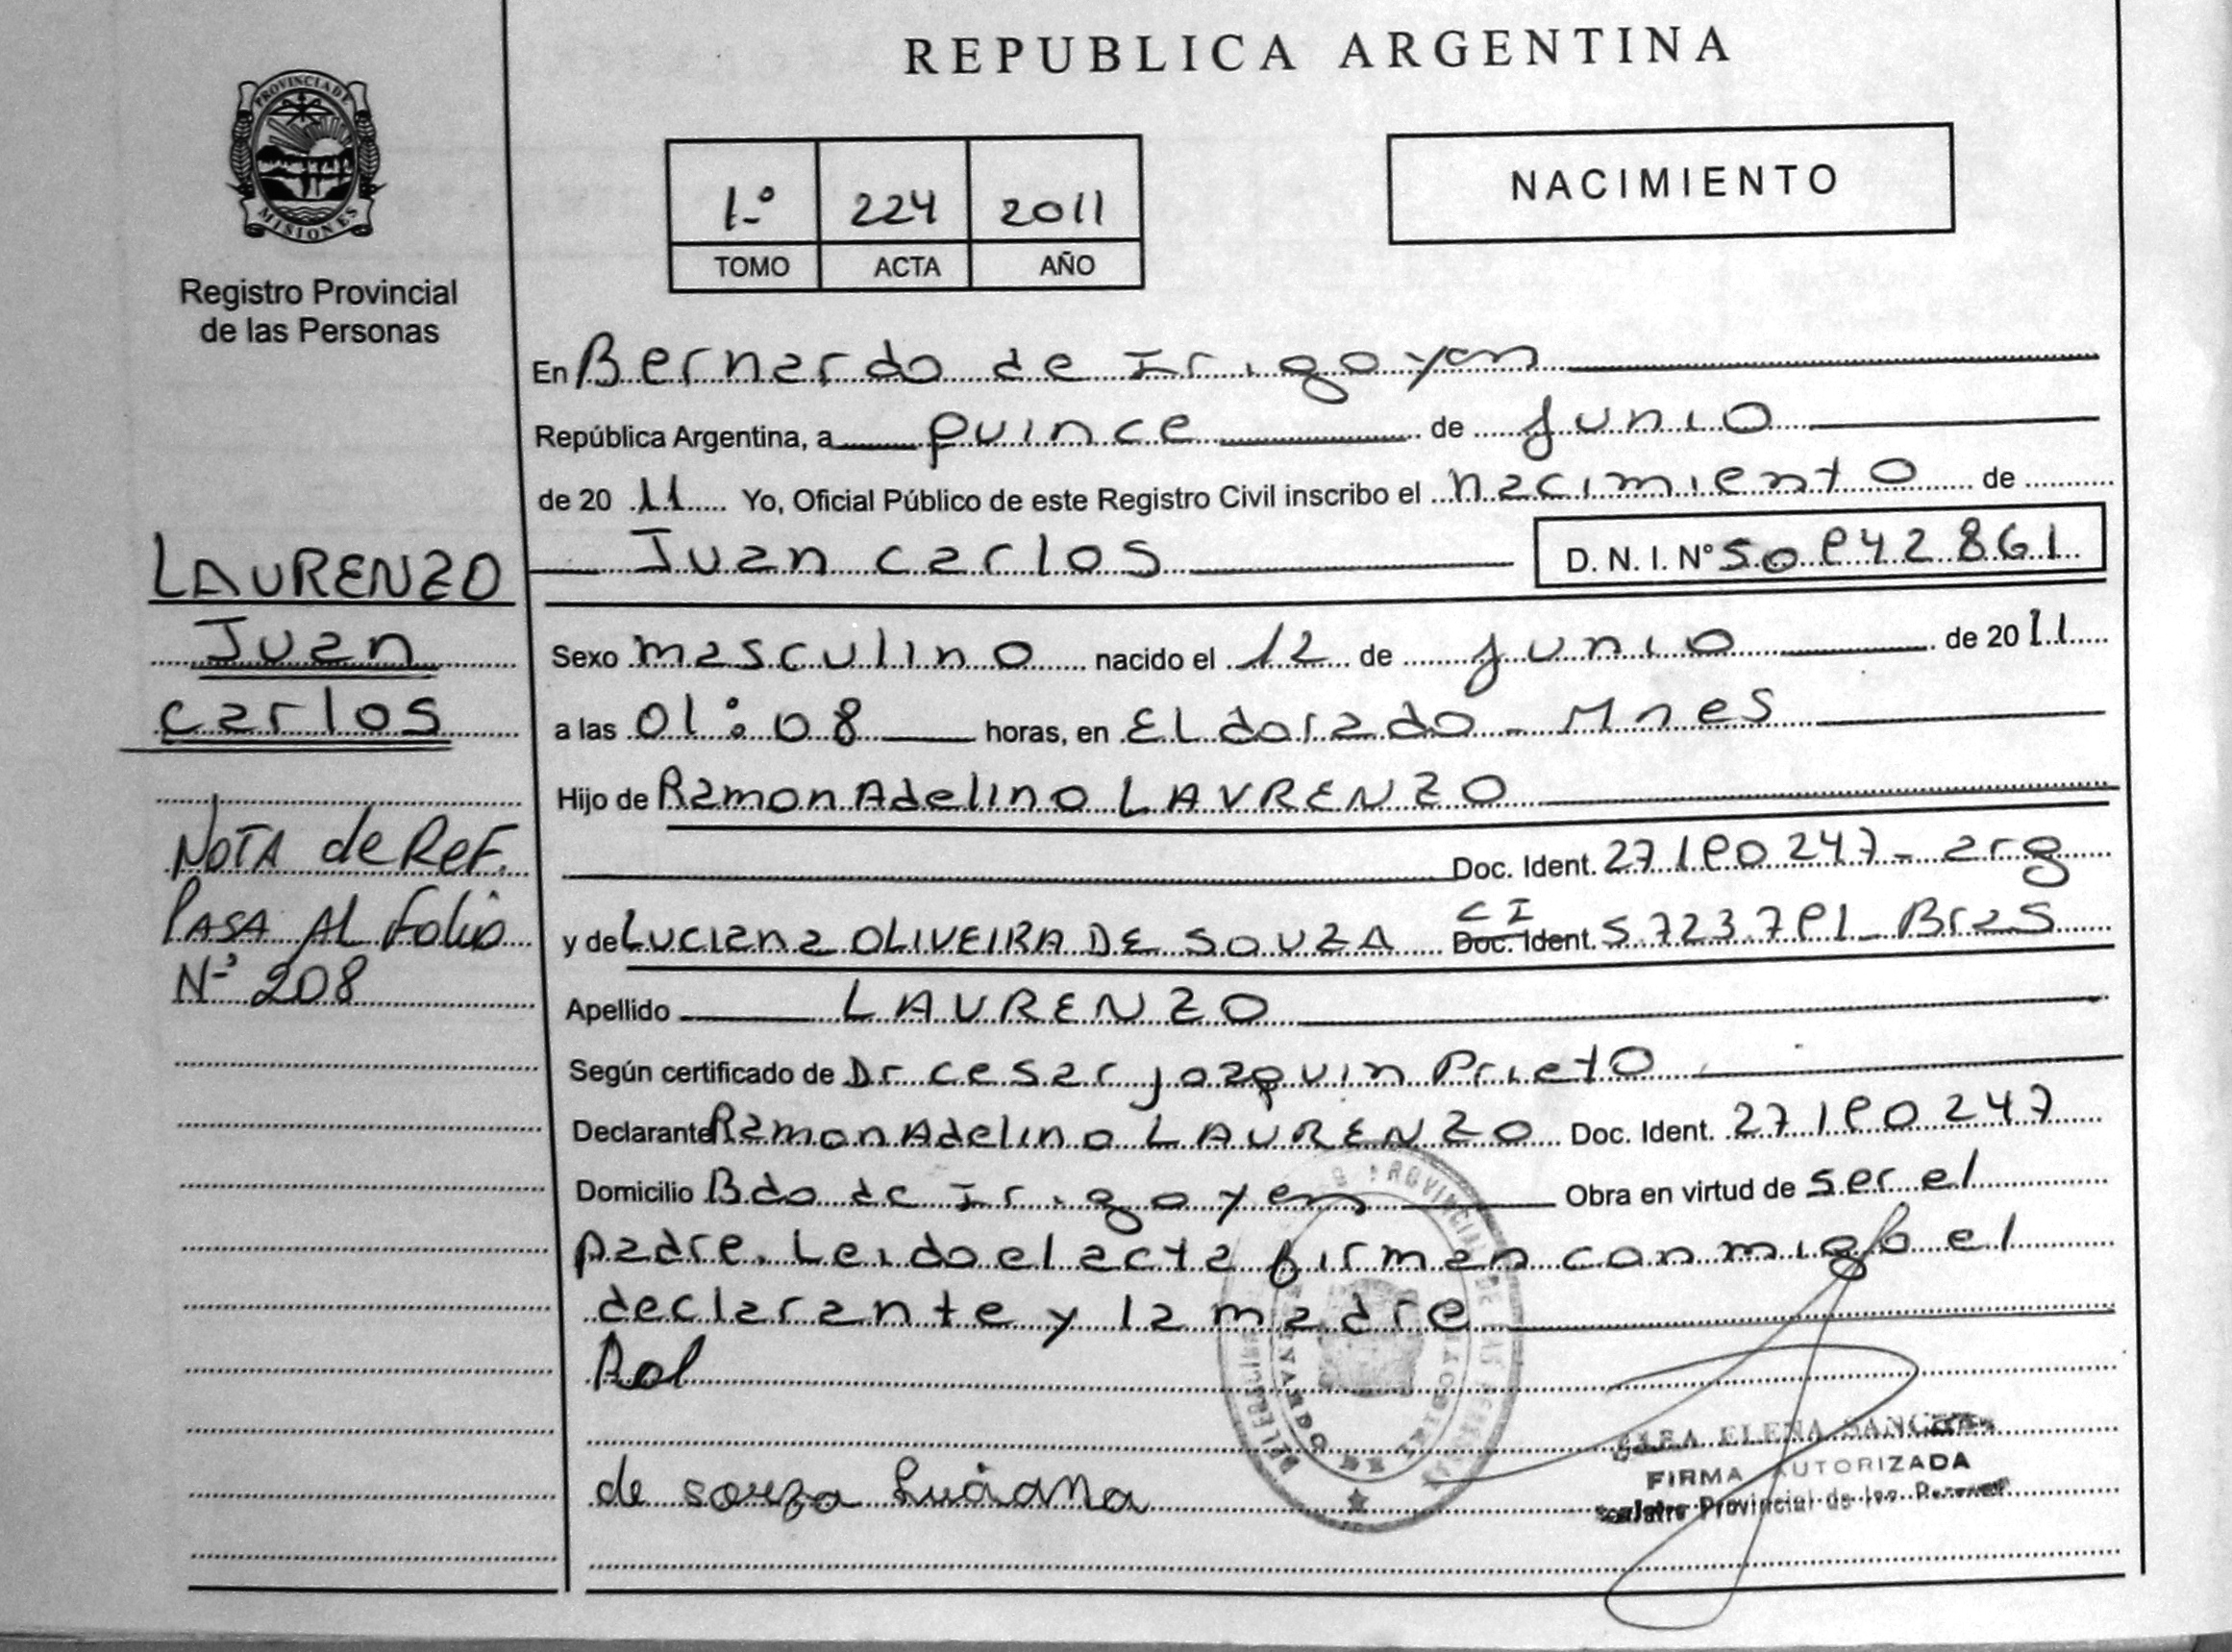 PROVINCIA DE
MISIONES
Registro Provincial
de las Personas
LAURENZO
Juan
carlos
NOTA de Ref.
PASA AL Folio
Nº 208
REPUBLICA ARGENTINA
1º 224 2011
TOMO ACTA AÑO
NACIMIENTO
En Bernardo de Irigoyen
República Argentina, a quince de junio
de 2011 Yo, Oficial Público de este Registro Civil inscribo el nacimiento de
Juan carlos D. N. I. Nº 50 942 861
Sexo masculino nacido el 12 de junio de 2011
a las 01:08 horas, en Eldorado - Mnes
Hijo de Ramon Adelino LAURENZO
Doc. Ident. 27190247- arg
CI
y de Luciana OLIVEIRA DE SOUZA Doc. Ident. 5.723.791 - Bras
Apellido LAURENZO
Según certificado de Dr cesar joaquin Prieto
Declarante Ramon Adelino LAURENZO Doc. Ident. 27190247
Domicilio Bdo de Irigoyen Obra en virtud de ser el
padre. Leido el acta firman conmigo el
declarante y la madre
de souza Luciana
ELENA
FIRMA AUTORIZADA
Provincial de